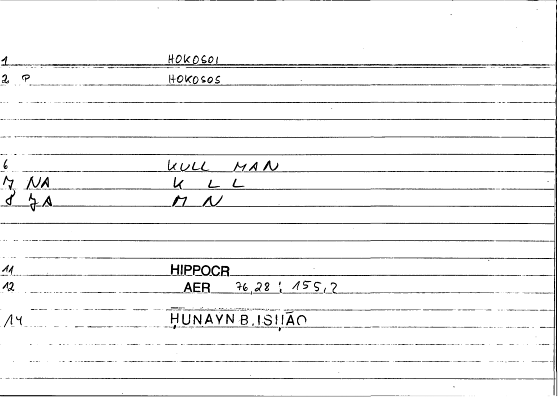 1 HOKOSO1
2 P HOKOSOS
6 KULL MAN
7 NA K L L
8 ZA M N
11 HIPPOCR
12 AER 76,28 : 155,2
14 ḤUNAYN B. ISḤĀQ